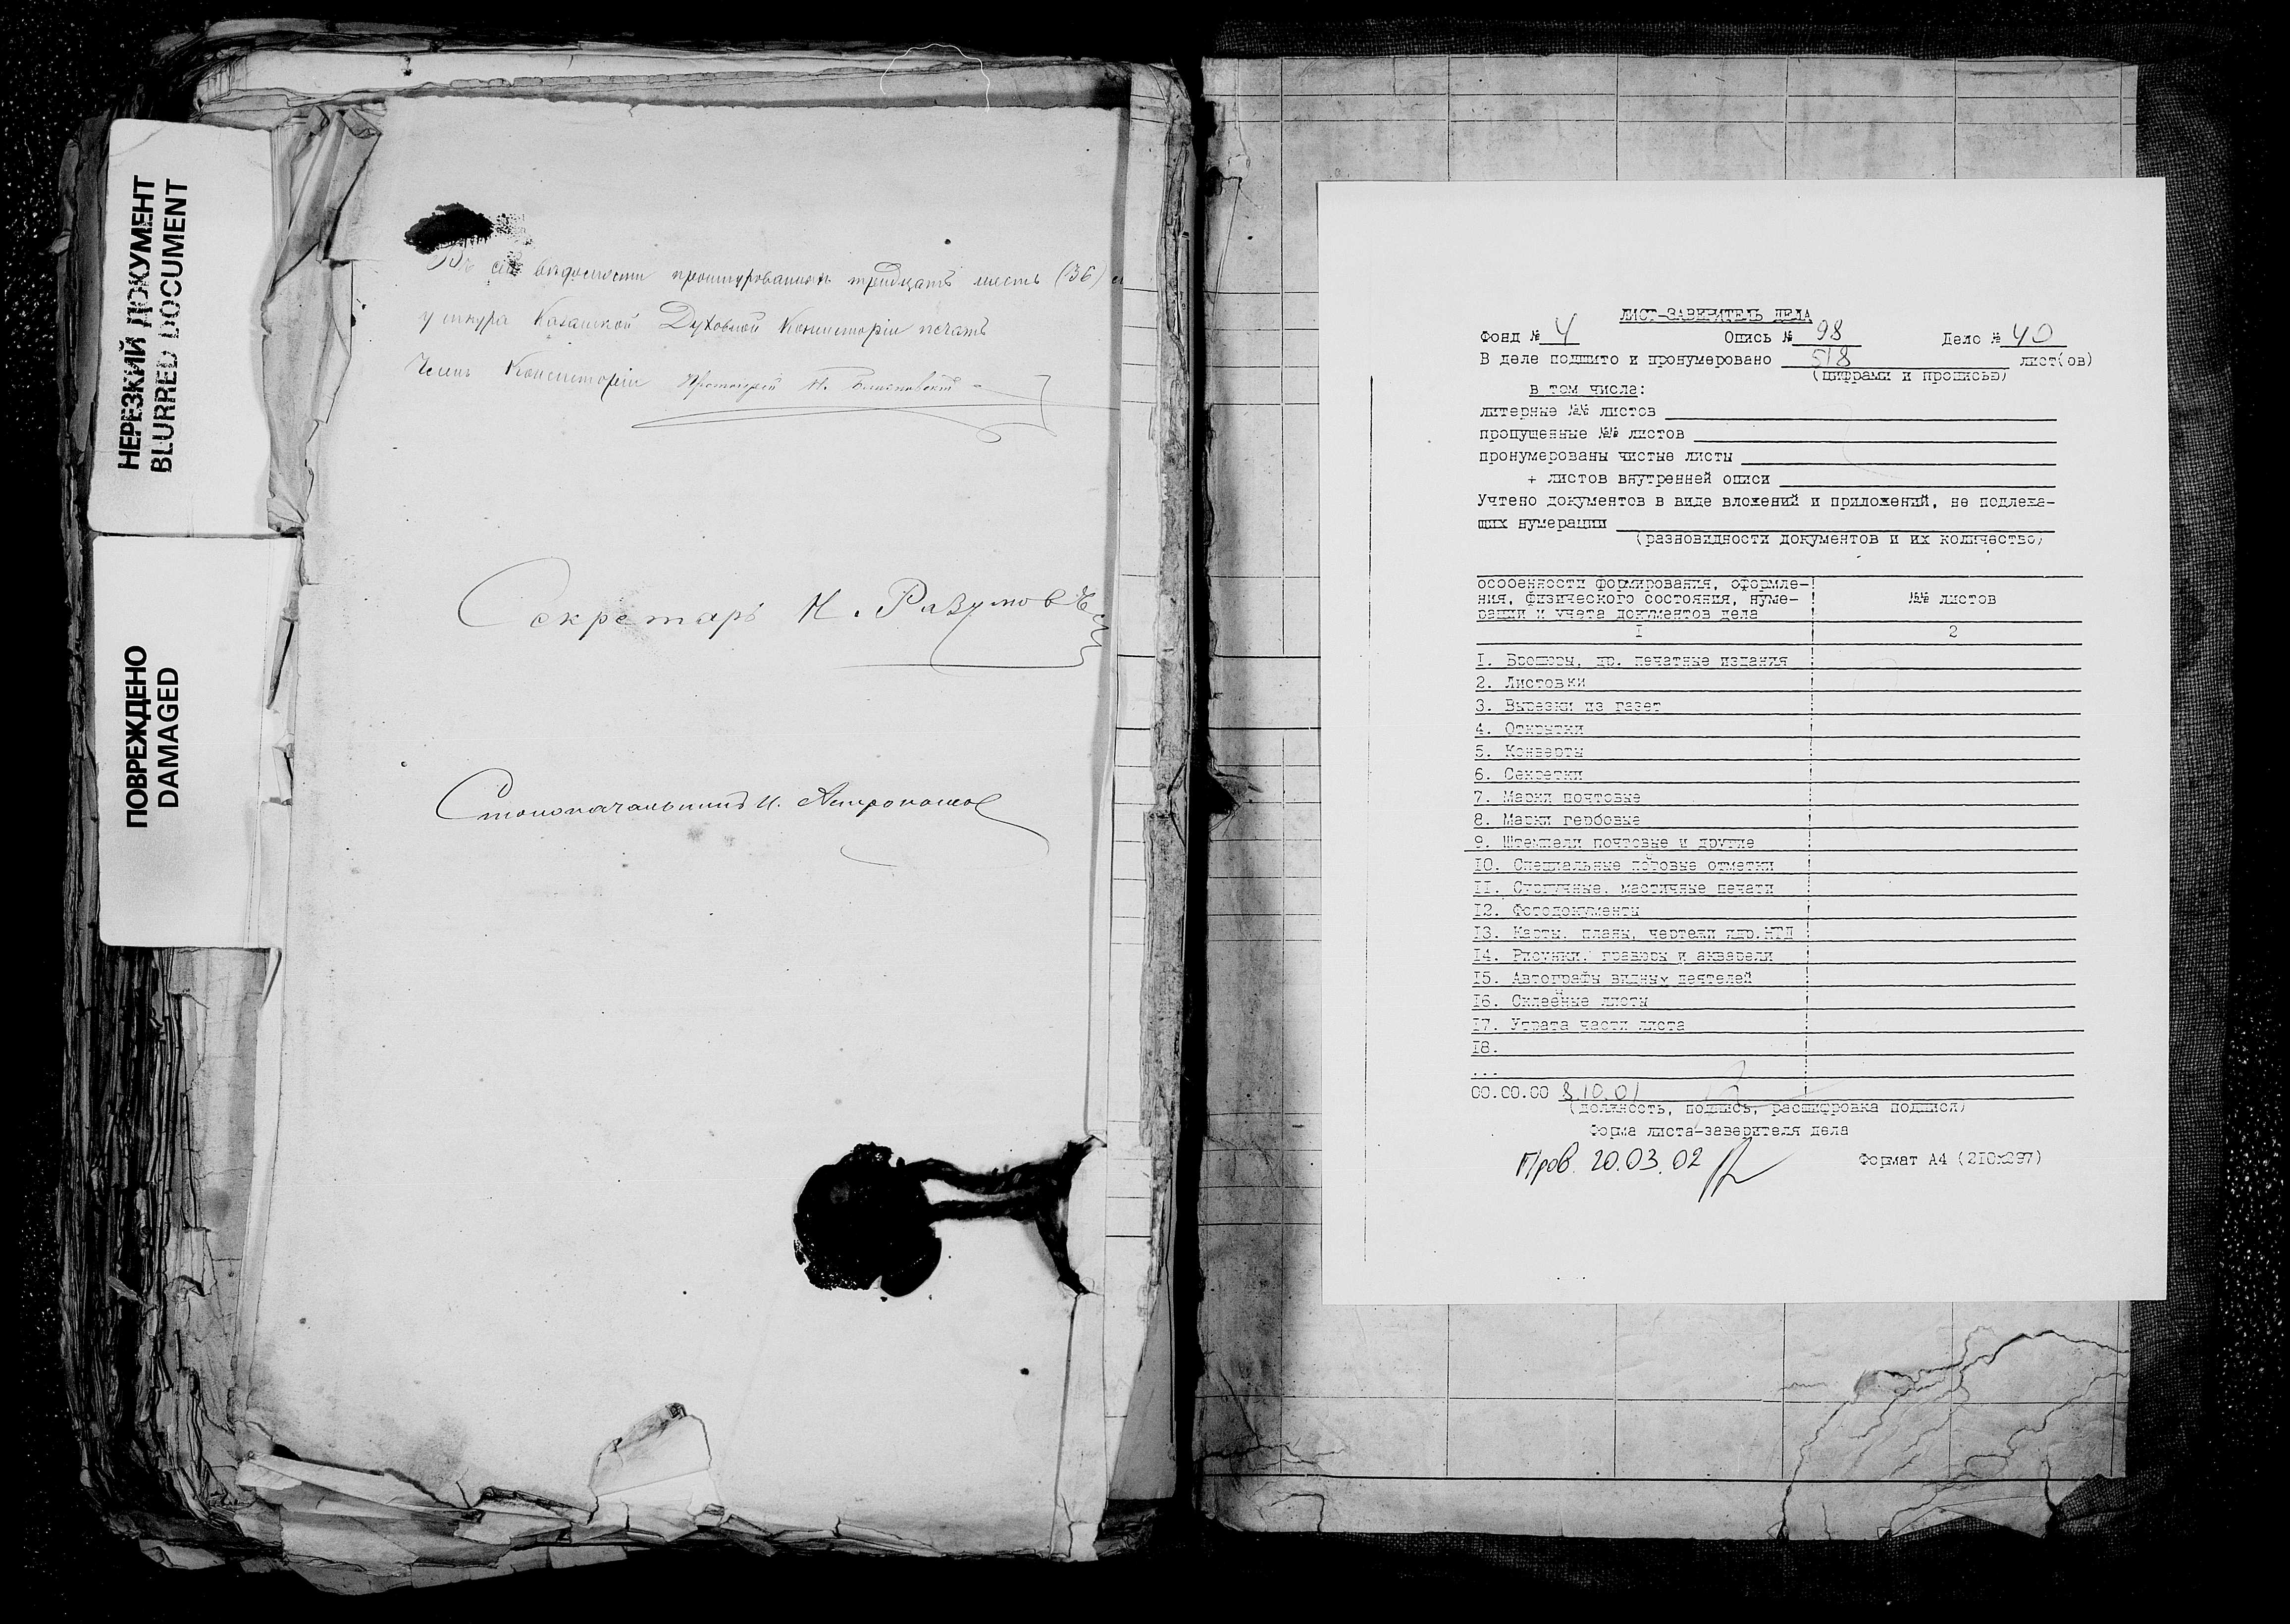 НЕРЕЗКИЙ ДОКУМЕНТ
BLURRED DOCUMENT
ПОВРЕЖДЕНО
DAMAGED
сей ведомости прошнурованныхъ тридцать шесть (36)
у шнура Казанской Духовной Консисторіи печать
Членъ Консисторіи Протоіерей
Секретарь Н. Разумовъ
Столоначальникъ
ЛИСТ-ЗАВЕРИТЕЛЬ ДЕЛА
Фонд № 4 Опись № 98 Дело № 40
В деле подшито и пронумеровано 518 лист(ов)
(цифрами и прописью)
в том числе:
литерные №№ листов
пропущенные №№ листов
пронумерованы чистые листы
+ листов внутренней описи
Учтено документов в виде вложений и приложений, не подлежа-
щих нумерации
(разновидности документов и их количество)
особенности формирования, оформле-
ния, физического состояния, нуме- №№ листов
рации и учета документов дела
I 2
1. Брошюры, др. печатные издания
2. Листовки
3. Вырезки из газет
4. Открытки
5. Конверты
6. Секретки
7. Марки почтовые
8. Марки гербовые
9. Штемпели почтовые и другие
10. Специальные почтовые отметки
11. Сургучные, мастичные печати
12. Фотодокументы
13. Карты, планы, чертежи и др. НТД
14. Рисунки, гравюры и акварели
15. Автографы видных деятелей
16. Склеенные листы
17. Утрата части листа
18.
...
00.00.00 8.10.01
(должность, подпись, расшифровка подписи)
Форма листа-заверителя дела
Пров. 20.03.02
Формат А4 (210x297)